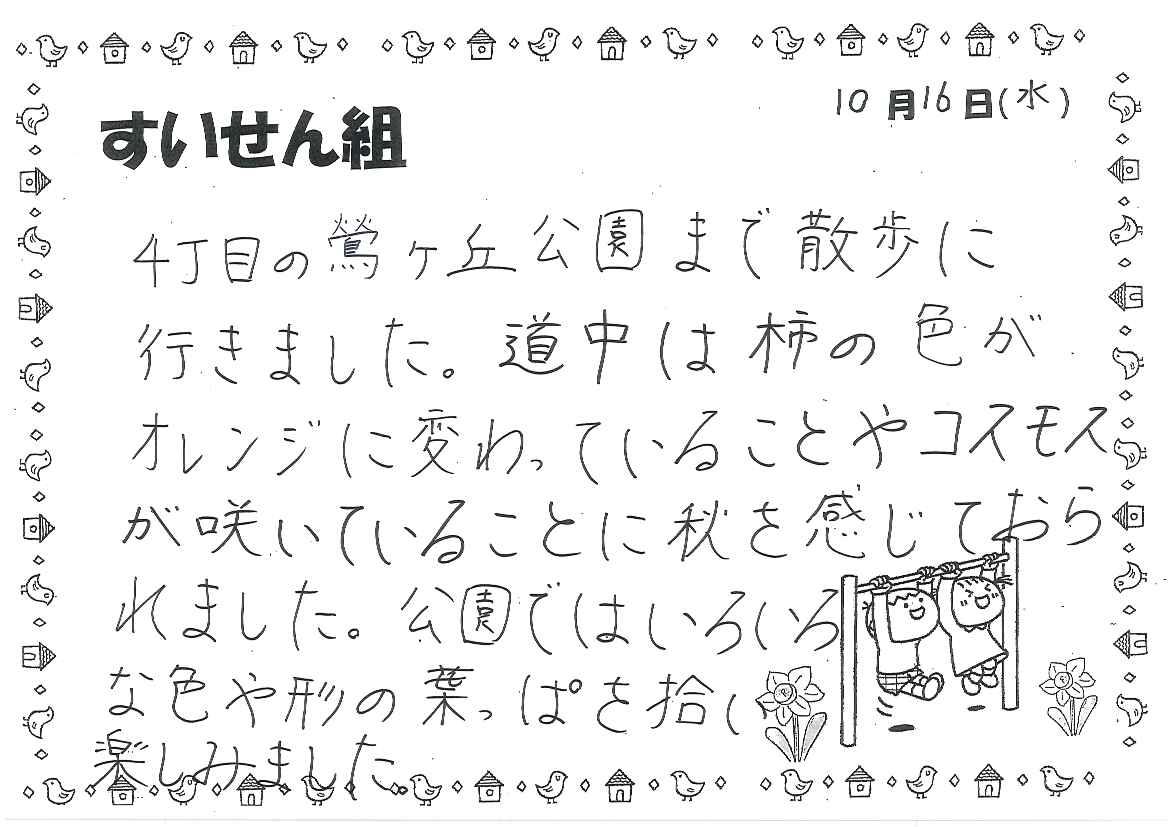 10月16日(水)
すいせん組
4丁目の鶯ヶ丘公園まで散歩に
行きました。道中は柿の色が
オレンジに変わっていることやコスモス
が咲いていることに秋を感じておら
れました。公園ではいろいろ
な色や形の葉っぱを拾い
楽しみました。